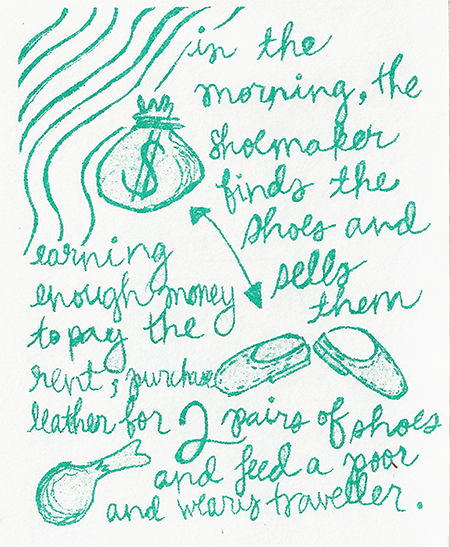 in the
morning, the
shoemaker
finds the
shoes and
sells
them
earning
enough money
to pay the
rent, purchase
leather for 2 pairs of shoes
and feed a poor
and weary traveller.
$